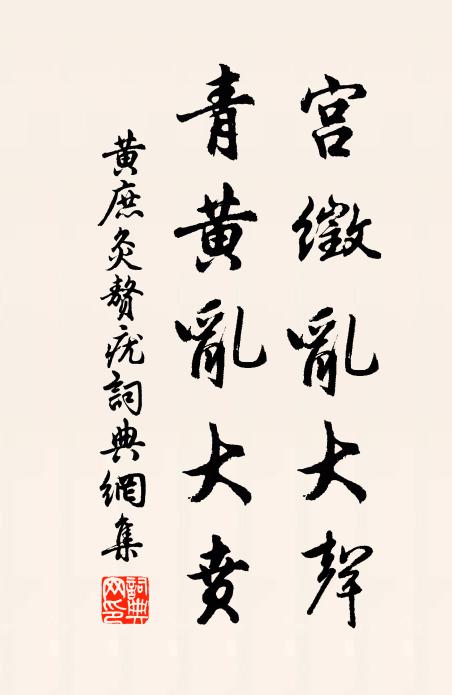 宫徵亂大聲
青黄亂大賁
黄庶灸贅疣詞典網集
詞典
网印